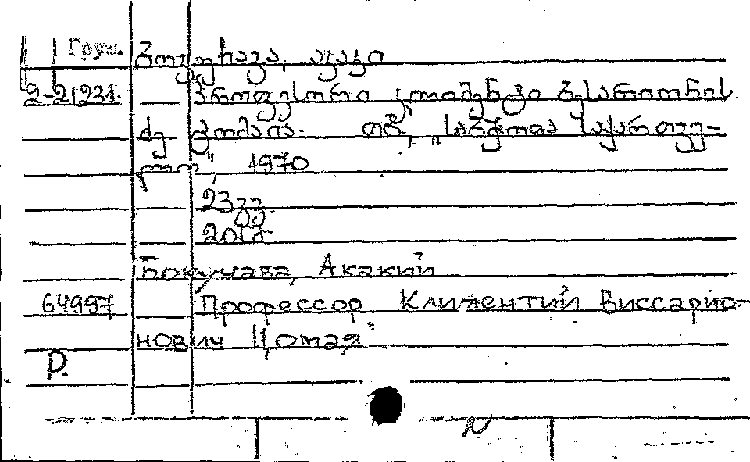 Груз. ბოკუჩავა, აკაკი
2-2/231. პროფესორი კლიმენტი ბესარიონის
ძე ცომაია. თბ., „საბჭოთა საქართვე-
ლო", 1970
23 გვ.
20 კ.
Бокучава, Акакий
64997 Профессор Климентий Виссарио-
нович Цомая.
р.